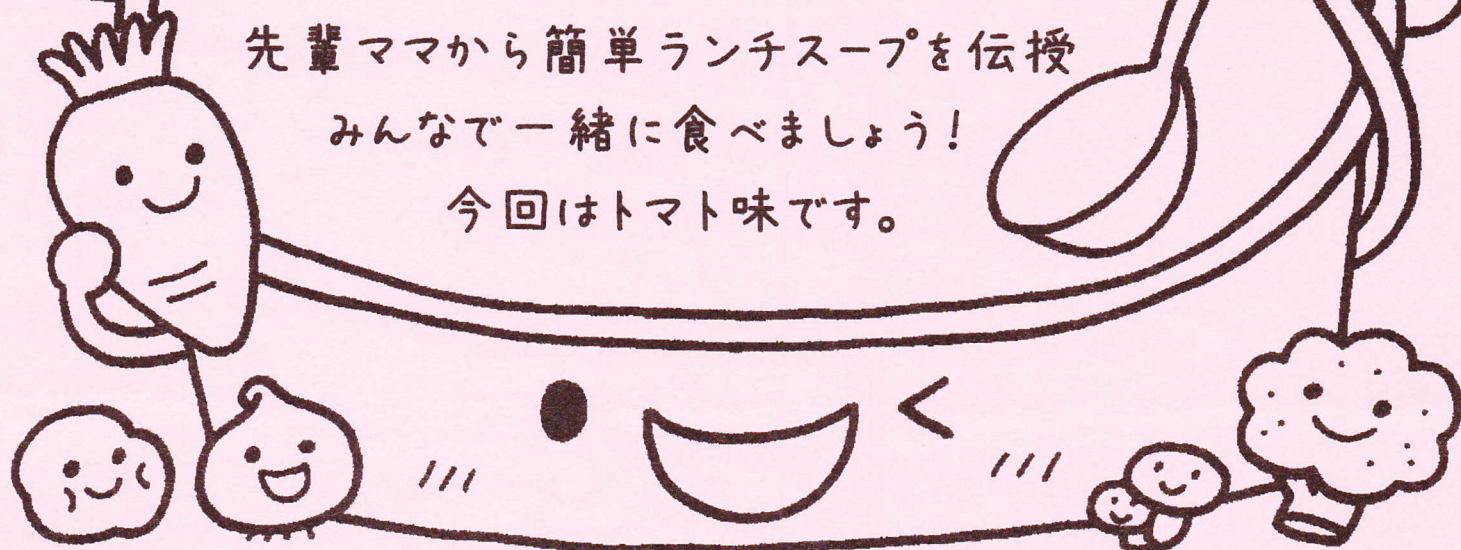 先輩ママから簡単ランチスープを伝授
みんなで一緒に食べましょう!
今回はトマト味です。